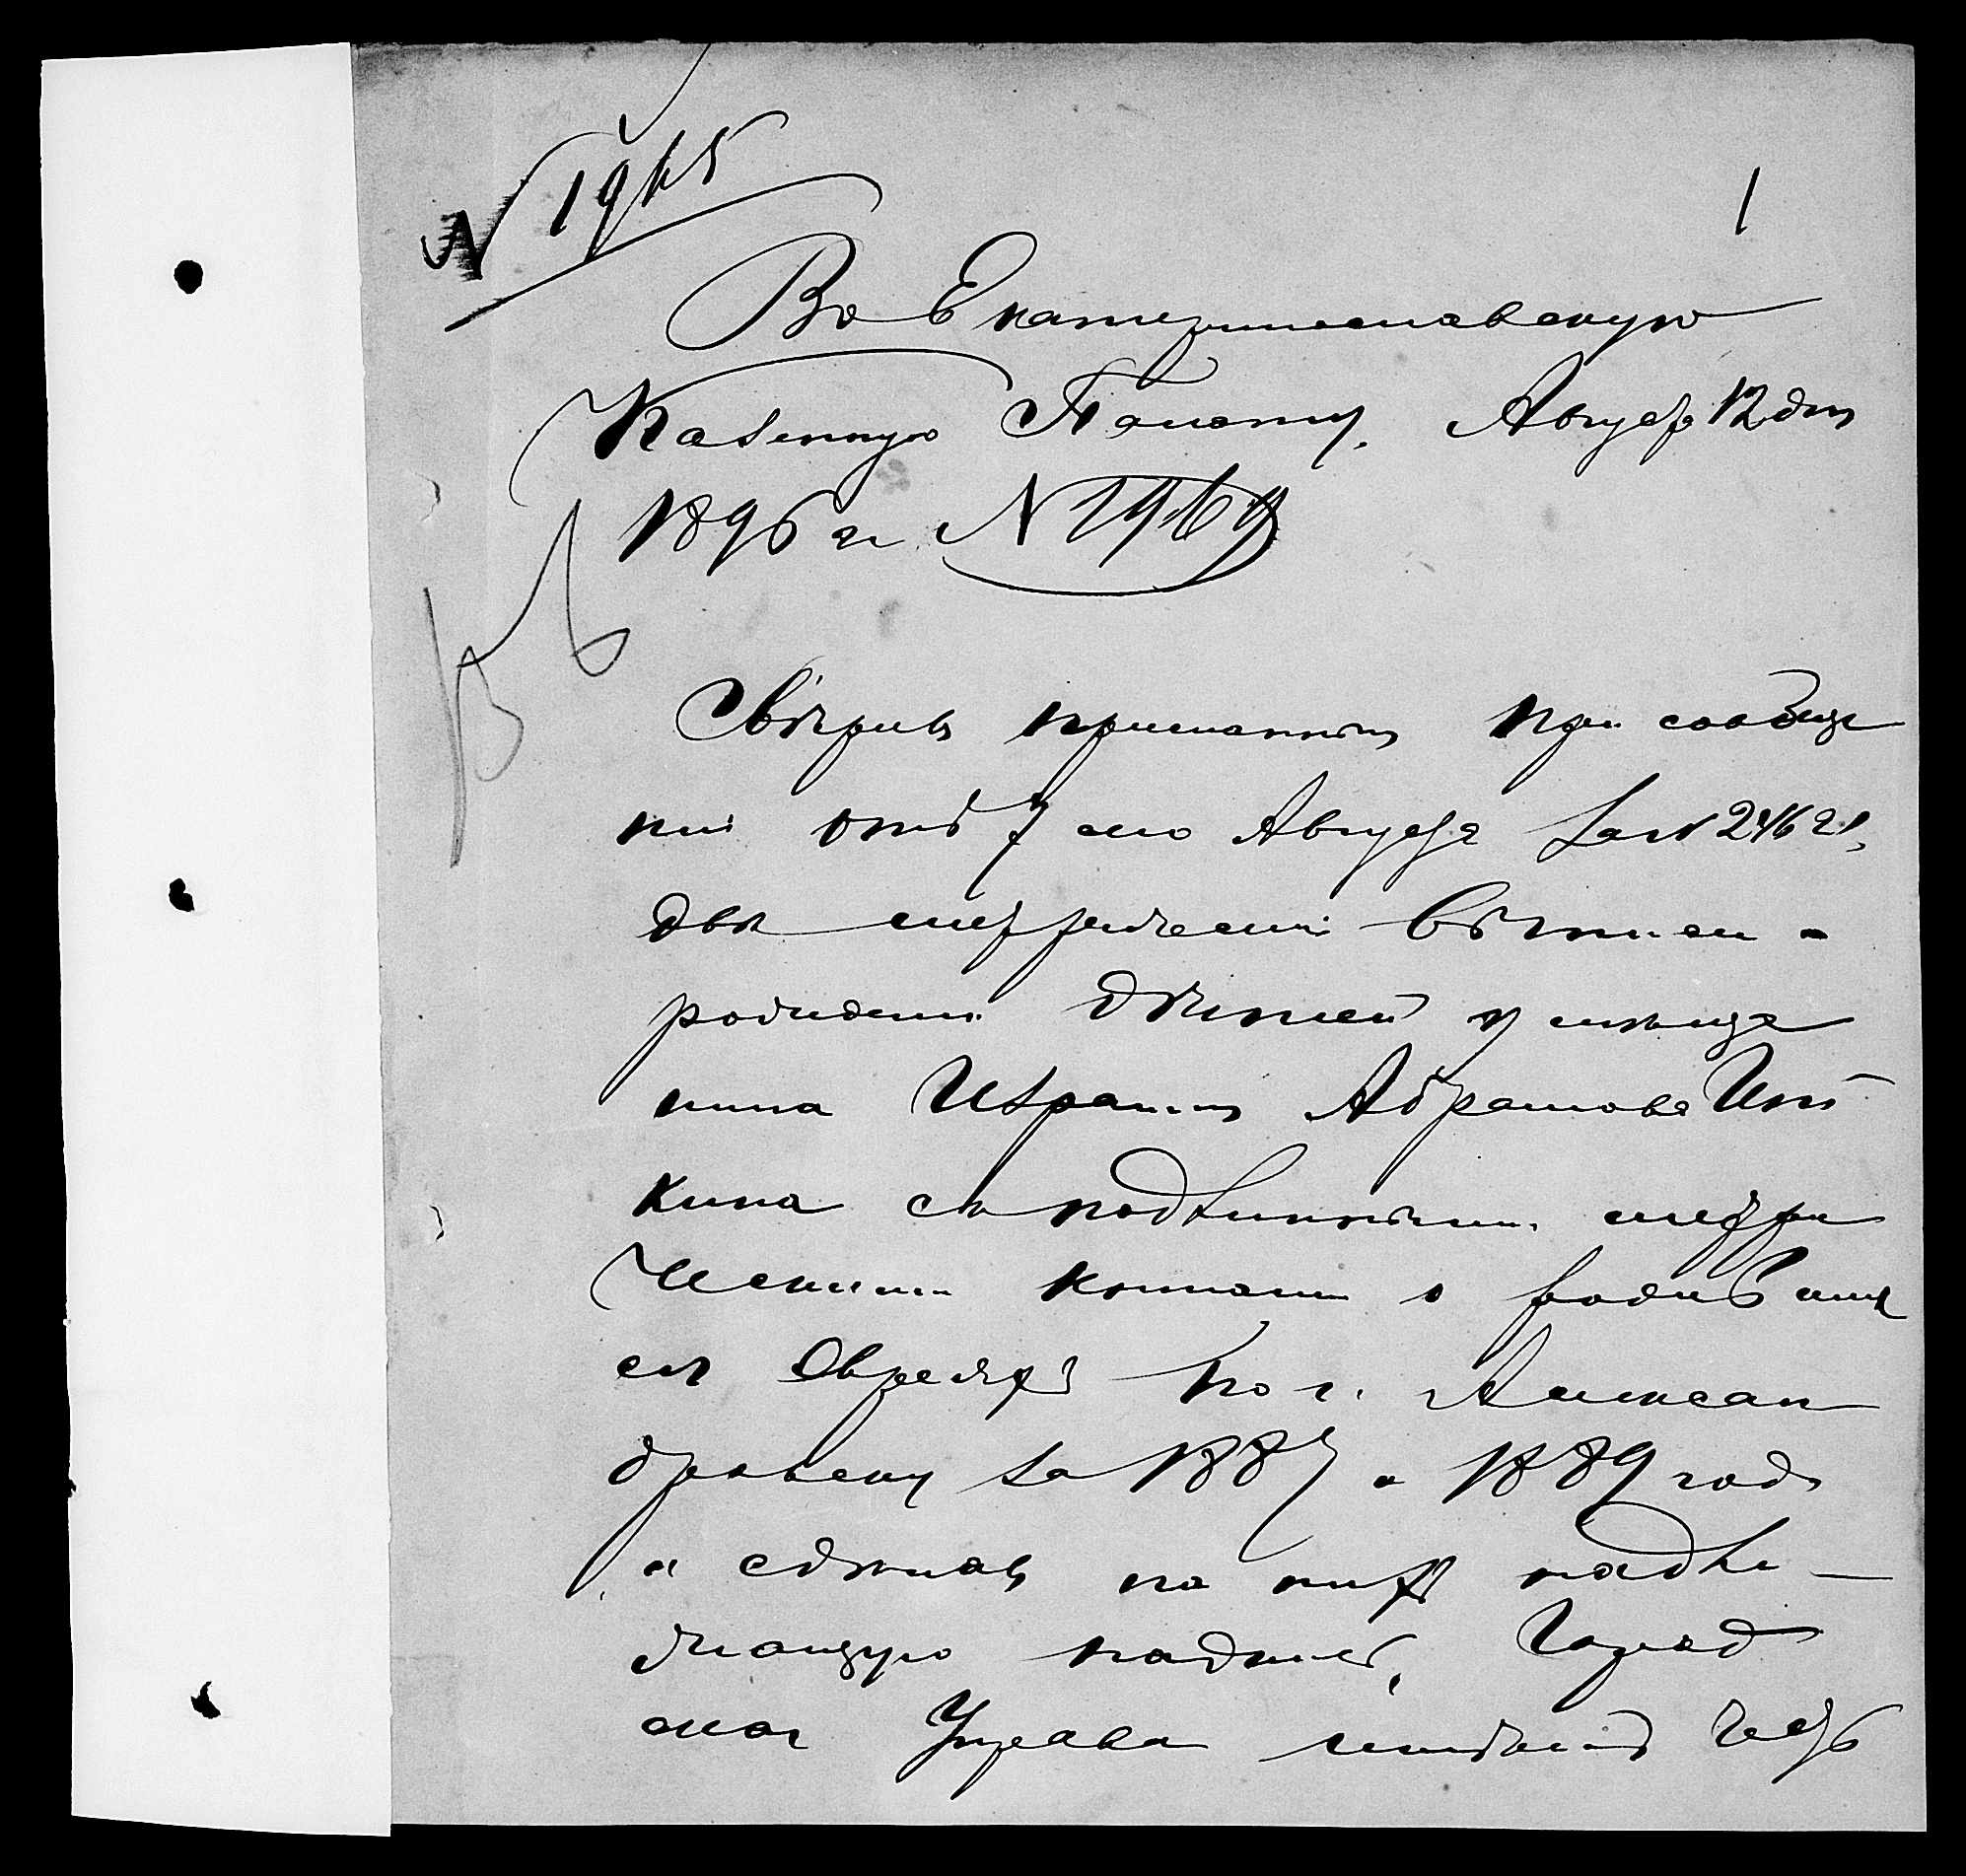 N 1965
1
Въ Екатеринославскую
Казенную Палату. Августа 12 дня
1896 г. N 1969
Свѣривъ присланныя при сообще
нiи отъ 7 сего Августа за N 24621,
двѣ метрическiя выписи о
рожденiи дѣтей у мѣща
нина Израиля Абрамова Ит
кина съ подлинными метри
ческими книгами о родивших
ся Евреяхъ по г. Алексан
дровску за 1887 и 1889 года
и сдѣлавъ на нихъ надле
жащую надпись, Город
ская Управа имѣетъ честь